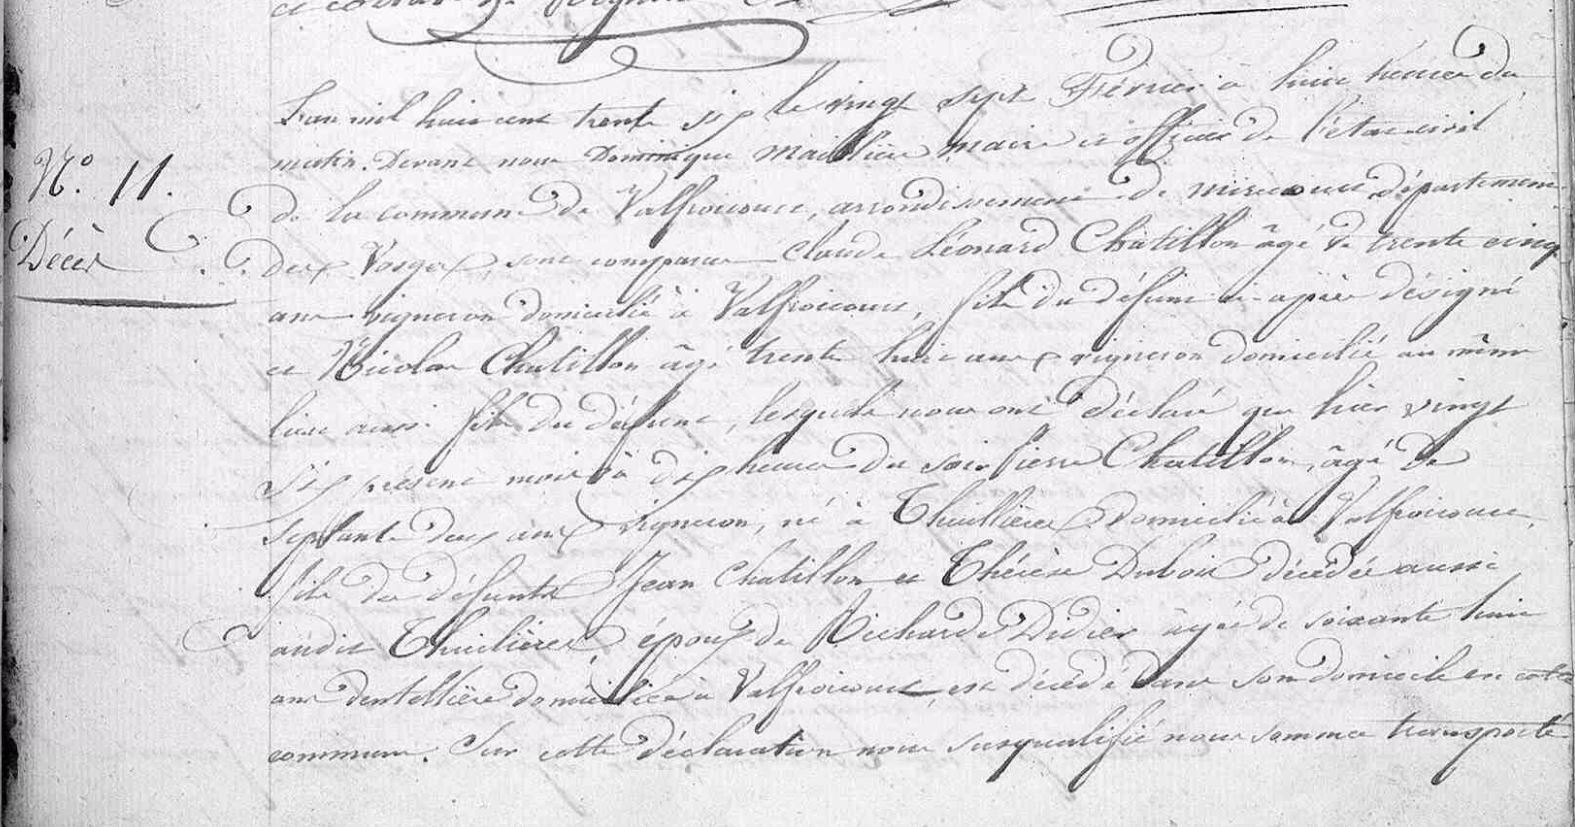 L'an mil huit cent trente six le vingt sept Février à huit heures du
matin. Devant nous Dominique Maillière maire et officier de l'état civil
N.° 11.
de la commune de Valfroicourt, arrondissement de mirecourt département
Décès
des Vosges, sont comparus Claude Léonard Châtillon âgé de trente cinq
ans vigneron domicilié à Valfroicourt, fils du défunt ci-après désigné
et Nicolas Chatillon âgé trente huit ans vigneron domicilié au même
lieu aussi fils du défunt, lesquels nous ont déclaré que hier vingt
six présent mois à dix heures du soir Pierre Chatillon, âgé de
septante deux ans vigneron, né à Thuillières domicilié à Valfroicourt,
fils de défunts Jean Chatillon et Thérèse Dubois décédée aussi
audit Thuillières, époux de Richarde Didier âgée de soixante huit
ans dentellière domiciliée à Valfroicourt, est décédé dans son domicile en cette
commune. Sur cette déclaration nous susqualifié nous sommes transporté